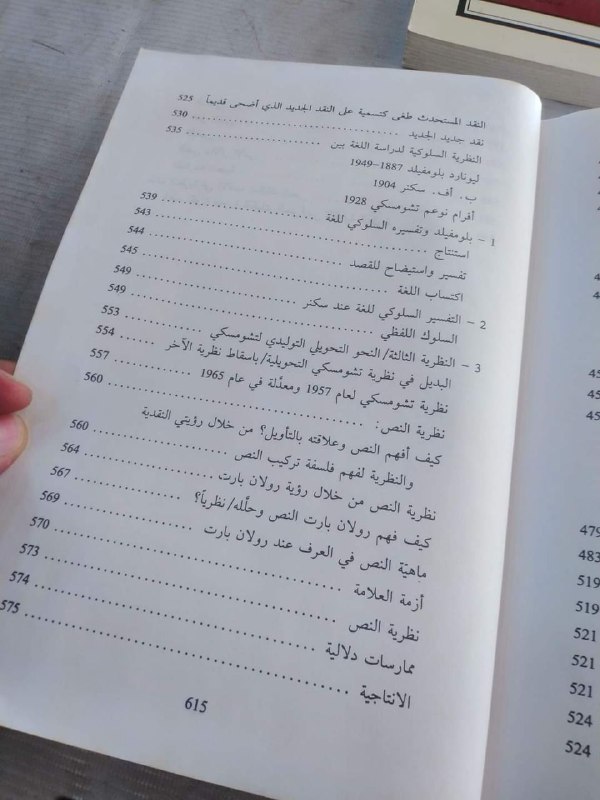 النقد المستحدث طغى كتسمية على النقد الجديد الذي أضحى قديماً 525
نقد جديد الجديد ........ 530
النظرية السلوكية لدراسة اللغة بين ........ 535
ليونارد بلومفيلد 1887-1949
ب. أف. سكنر 1904
أفرام نوعم تشومسكي 1928
1 - بلومفيلد وتفسيره السلوكي للغة ........ 539
استنتاج ........ 543
تفسير واستيضاح للقصد ........ 544
اكتساب اللغة ........ 545
2 - التفسير السلوكي للغة عند سكنر ........ 549
السلوك اللفظي ........ 549
3 - النظرية الثالثة/النحو التحويلي التوليدي لتشومسكي ........ 553
البديل في نظرية تشومسكي التحويلية/باسقاط نظرية الآخر 554
نظرية تشومسكي لعام 1957 ومعدّلة في عام 1965 ........ 557
نظرية النص: ........ 560
كيف أفهم النص وعلاقته بالتأويل؟ من خلال رؤيتي النقدية
والنظرية لفهم فلسفة تركيب النص ........ 560
نظرية النص من خلال رؤية رولان بارت ........ 564
كيف فهم رولان بارت النص وحلّله/نظرياً؟ ........ 567
ماهيّة النص في العرف عند رولان بارت ........ 569
أزمة العلامة ........ 570
نظرية النص ........ 573
ممارسات دلالية ........ 574
الانتاجية ........ 575
615
479
483
519
519
521
521
521
524
524